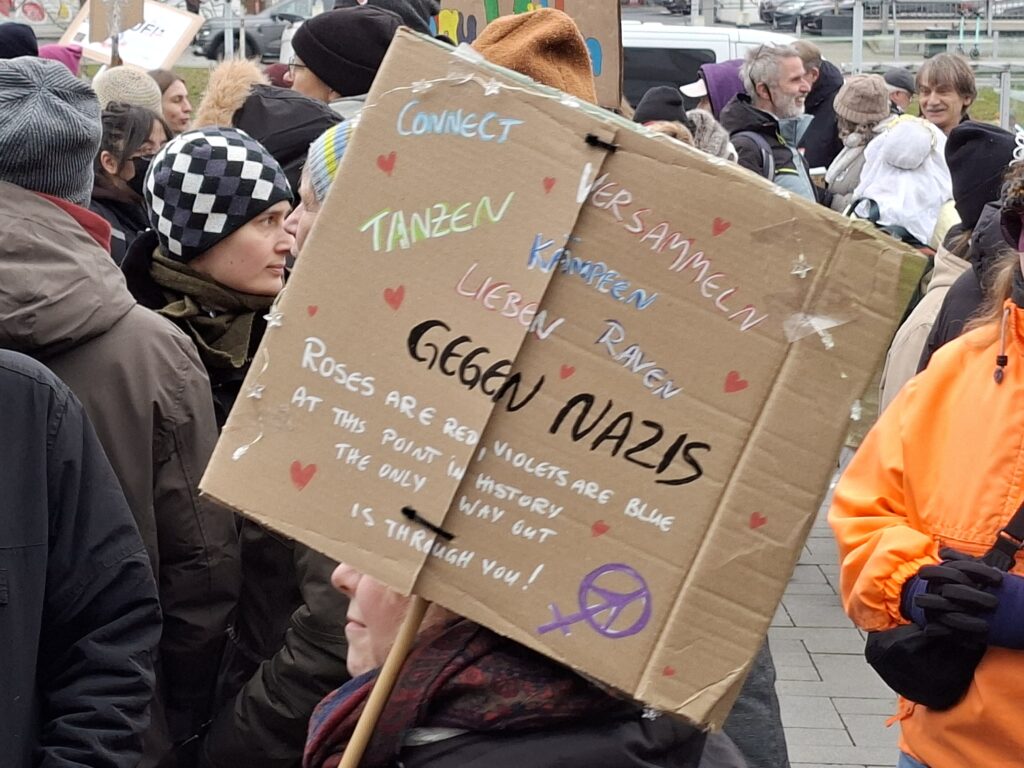 CONNECT
VERSAMMELN
TANZEN
KÄMPFEN
LIEBEN
RAVEN
GEGEN NAZIS
ROSES ARE RED, VIOLETS ARE BLUE
AT THIS POINT IN HISTORY
THE ONLY WAY OUT
IS THROUGH YOU!